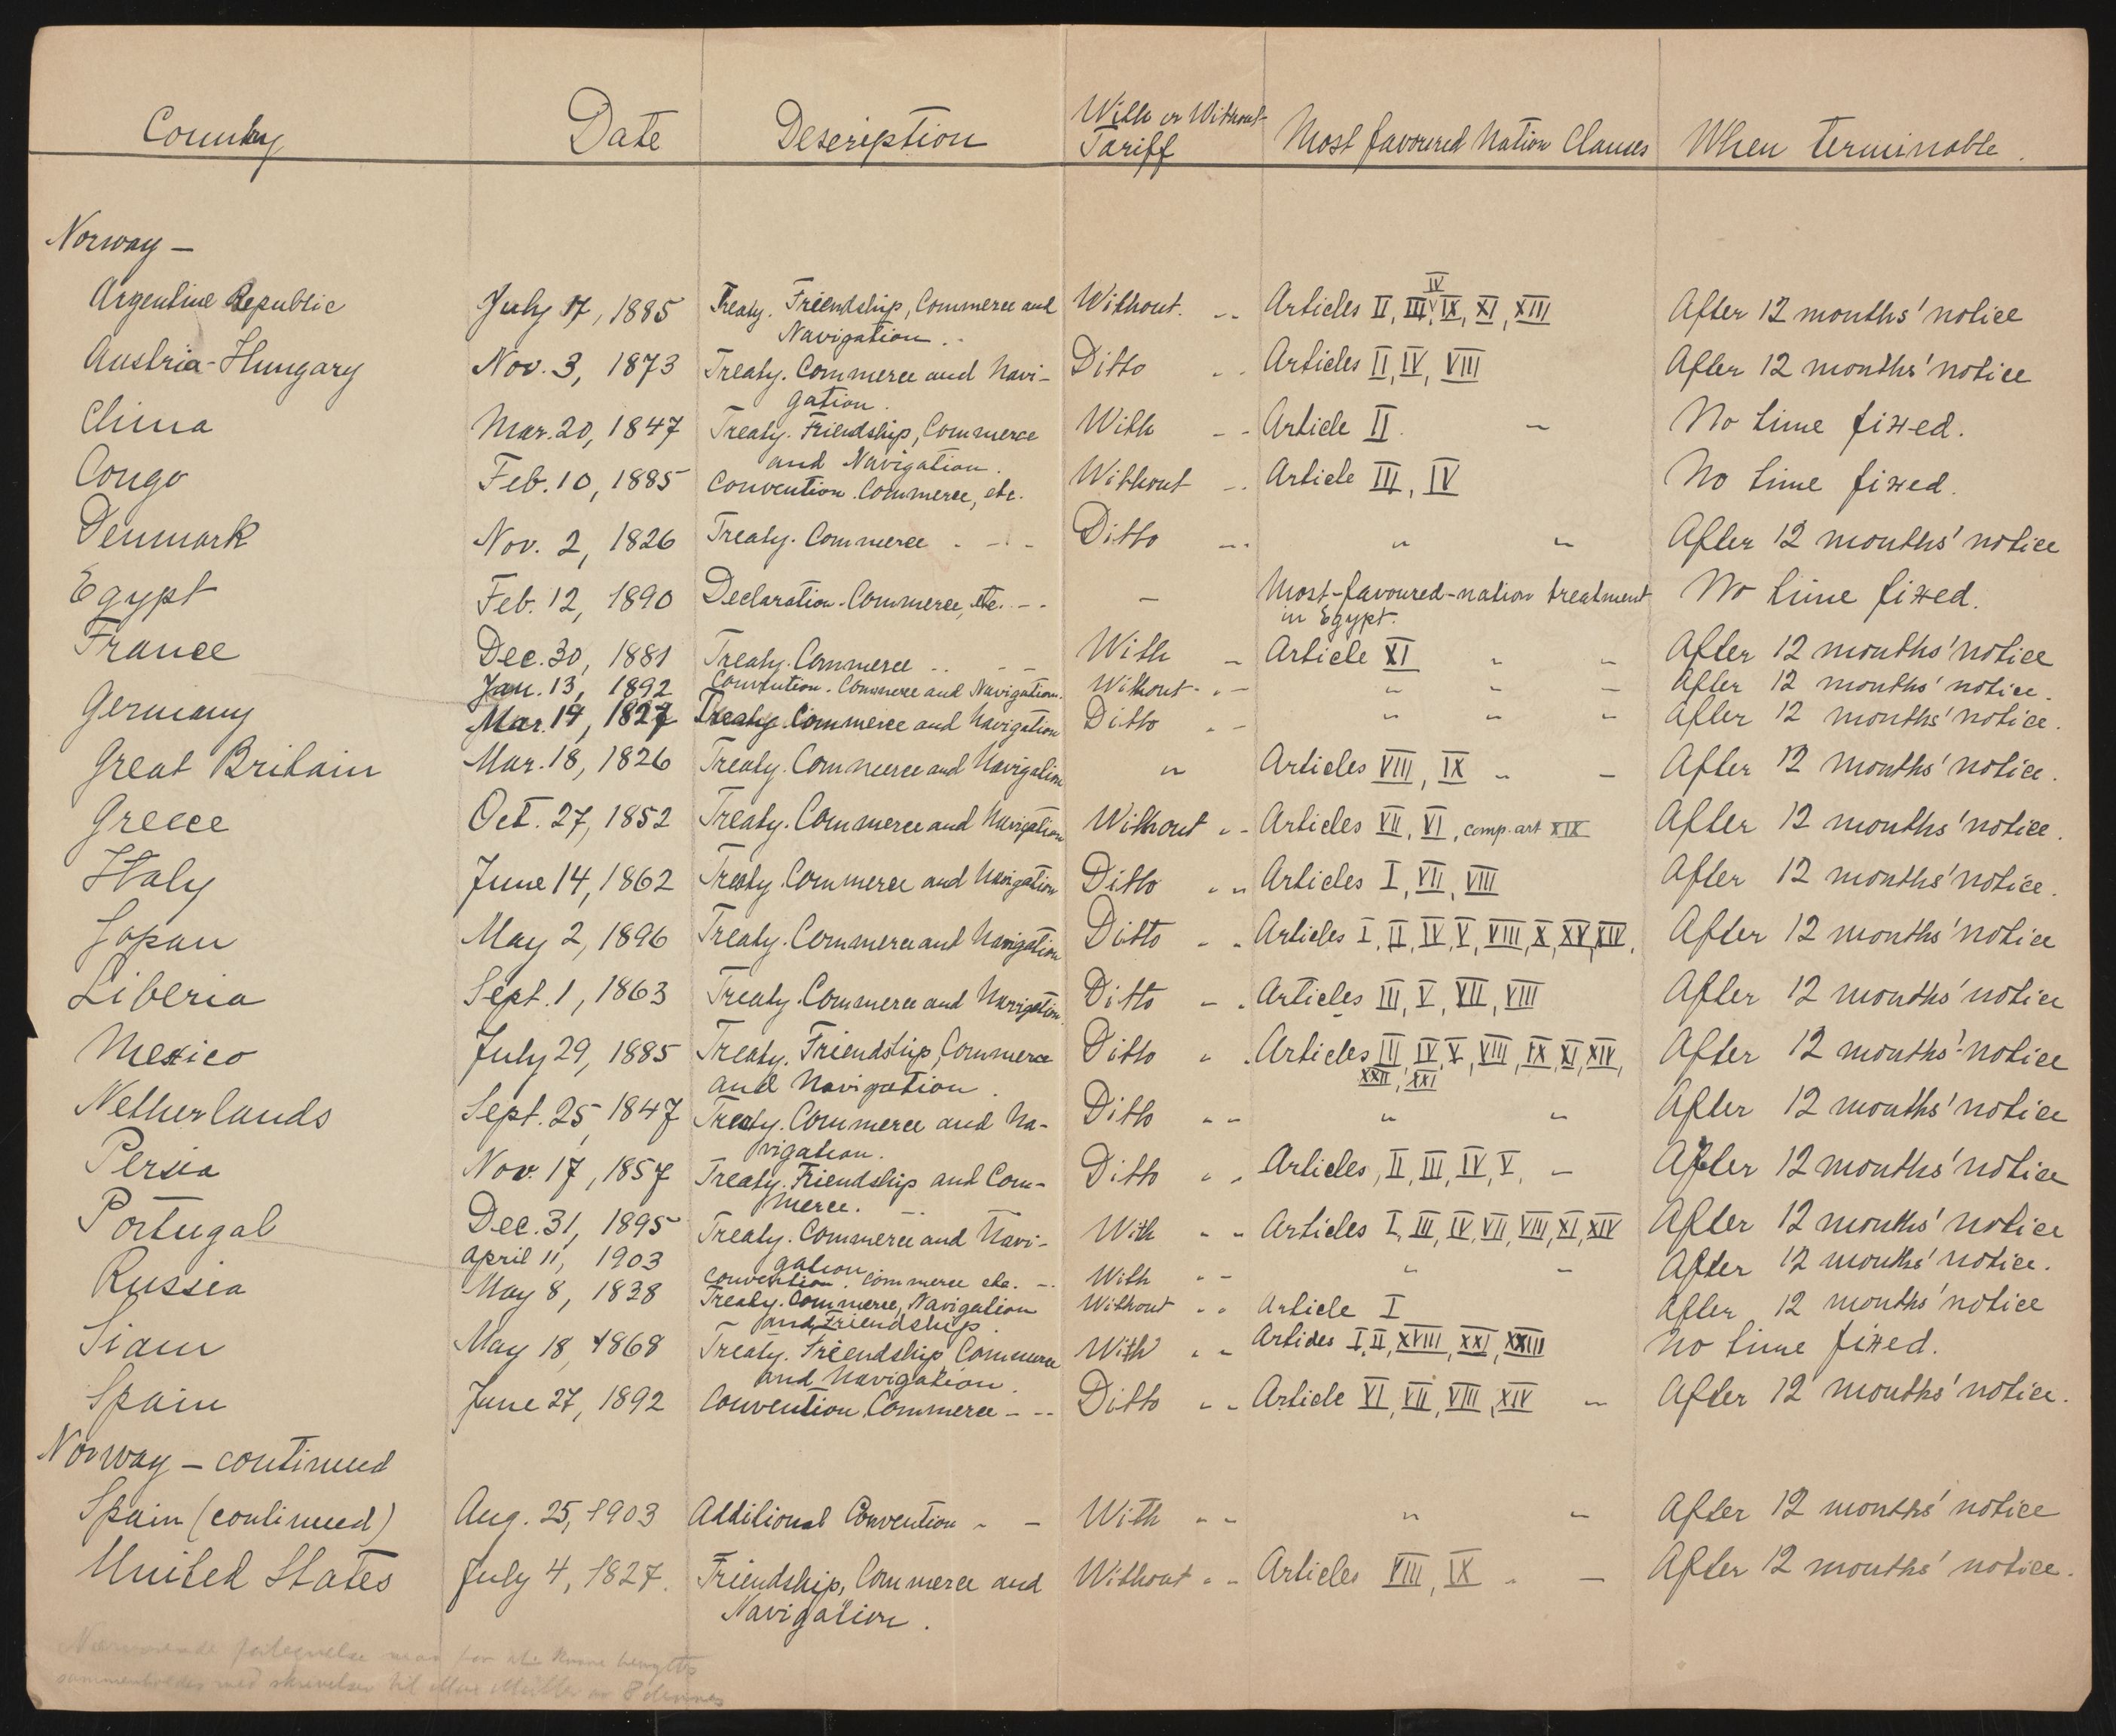 Country Date Description With or Without Tariff Most favoured Nation Clauses When terminable.
Norway —
Argentine Republic July 17, 1885 Treaty. Friendship, Commerce and Without. -- Articles II, III, IV, IX, XI, XIII After 12 months' notice
Navigation. -
Austria-Hungary Nov. 3, 1873 Treaty. Commerce and Navi- Ditto -- Articles II, IV, VIII After 12 months' notice
gation.
China Mar. 20, 1847 Treaty. Friendship, Commerce With -- Article II. — No time fixed.
and Navigation.
Congo Feb. 10, 1885 Convention. Commerce, etc. Without -- Article III, IV No time fixed.
Denmark Nov. 2, 1826 Treaty. Commerce - - - Ditto -- " " After 12 months' notice
Egypt Feb. 12, 1890 Declaration. Commerce, etc. -- — Most-favoured-nation treatment No time fixed.
in Egypt.
France Dec. 30, 1881 Treaty. Commerce -- -- With - Article XI - - After 12 months' notice
Jan. 13, 1892 Convention. Commerce and Navigation. Without. -- " " - After 12 months' notice.
Germany Mar. 14, 1827 Treaty Commerce and Navigation Ditto -- " " " After 12 months' notice.
Great Britain Mar. 18, 1826 Treaty. Commerce and Navigation " Articles VIII, IX " - After 12 months' notice.
Greece Oct. 27, 1852 Treaty. Commerce and Navigation Without -- Articles VII, VI, comp. art XIX After 12 months' notice.
Italy June 14, 1862 Treaty. Commerce and Navigation Ditto -- Articles I, VII, VIII After 12 months' notice.
Japan May 2, 1896 Treaty. Commerce and Navigation Ditto -- Articles I, II, IV, V, VIII, X, XV, XIV, After 12 months' notice
Liberia Sept. 1, 1863 Treaty. Commerce and Navigation. Ditto -- Articles III, V, VII, VIII After 12 months' notice
Mexico July 29, 1885 Treaty. Friendship, Commerce Ditto -- Articles III, IV, V, VIII, IX, XI, XIV, After 12 months' notice
and Navigation. XXII, XXI
Netherlands Sept. 25, 1847 Treaty. Commerce and Na- Ditto -- " " After 12 months' notice
vigation.
Persia Nov. 17, 1857 Treaty. Friendship and Com- Ditto -- Articles, II, III, IV, V, - After 12 months' notice
merce. --
Portugal Dec. 31, 1895 Treaty. Commerce and Navi- With -- Articles I, III, IV, VII, VIII, XI, XIV After 12 months' notice
gation
April 11, 1903 Convention. Commerce etc. -- With -- " - After 12 months' notice.
Russia May 8, 1838 Treaty. Commerce, Navigation Without -- Article I After 12 months' notice
and Friendship.
Siam May 18, 1868 Treaty. Friendship Commerce With -- Articles I, II, XVIII, XXI, XXIII No time fixed.
and Navigation.
Spain June 27, 1892 Convention, Commerce - -- Ditto -- Article VI, VII, VIII, XIV - After 12 months' notice.
Norway — continued
Spain (continued) Aug. 25, 1903 Additional Convention - - With -- " - After 12 months' notice
United States July 4, 1827. Friendship, Commerce and Without -- Articles VIII, IX - - After 12 months' notice.
Navigation.
Nærværende fortegnelse maa for at kunne benyttes
sammenholdes med skrivelser til